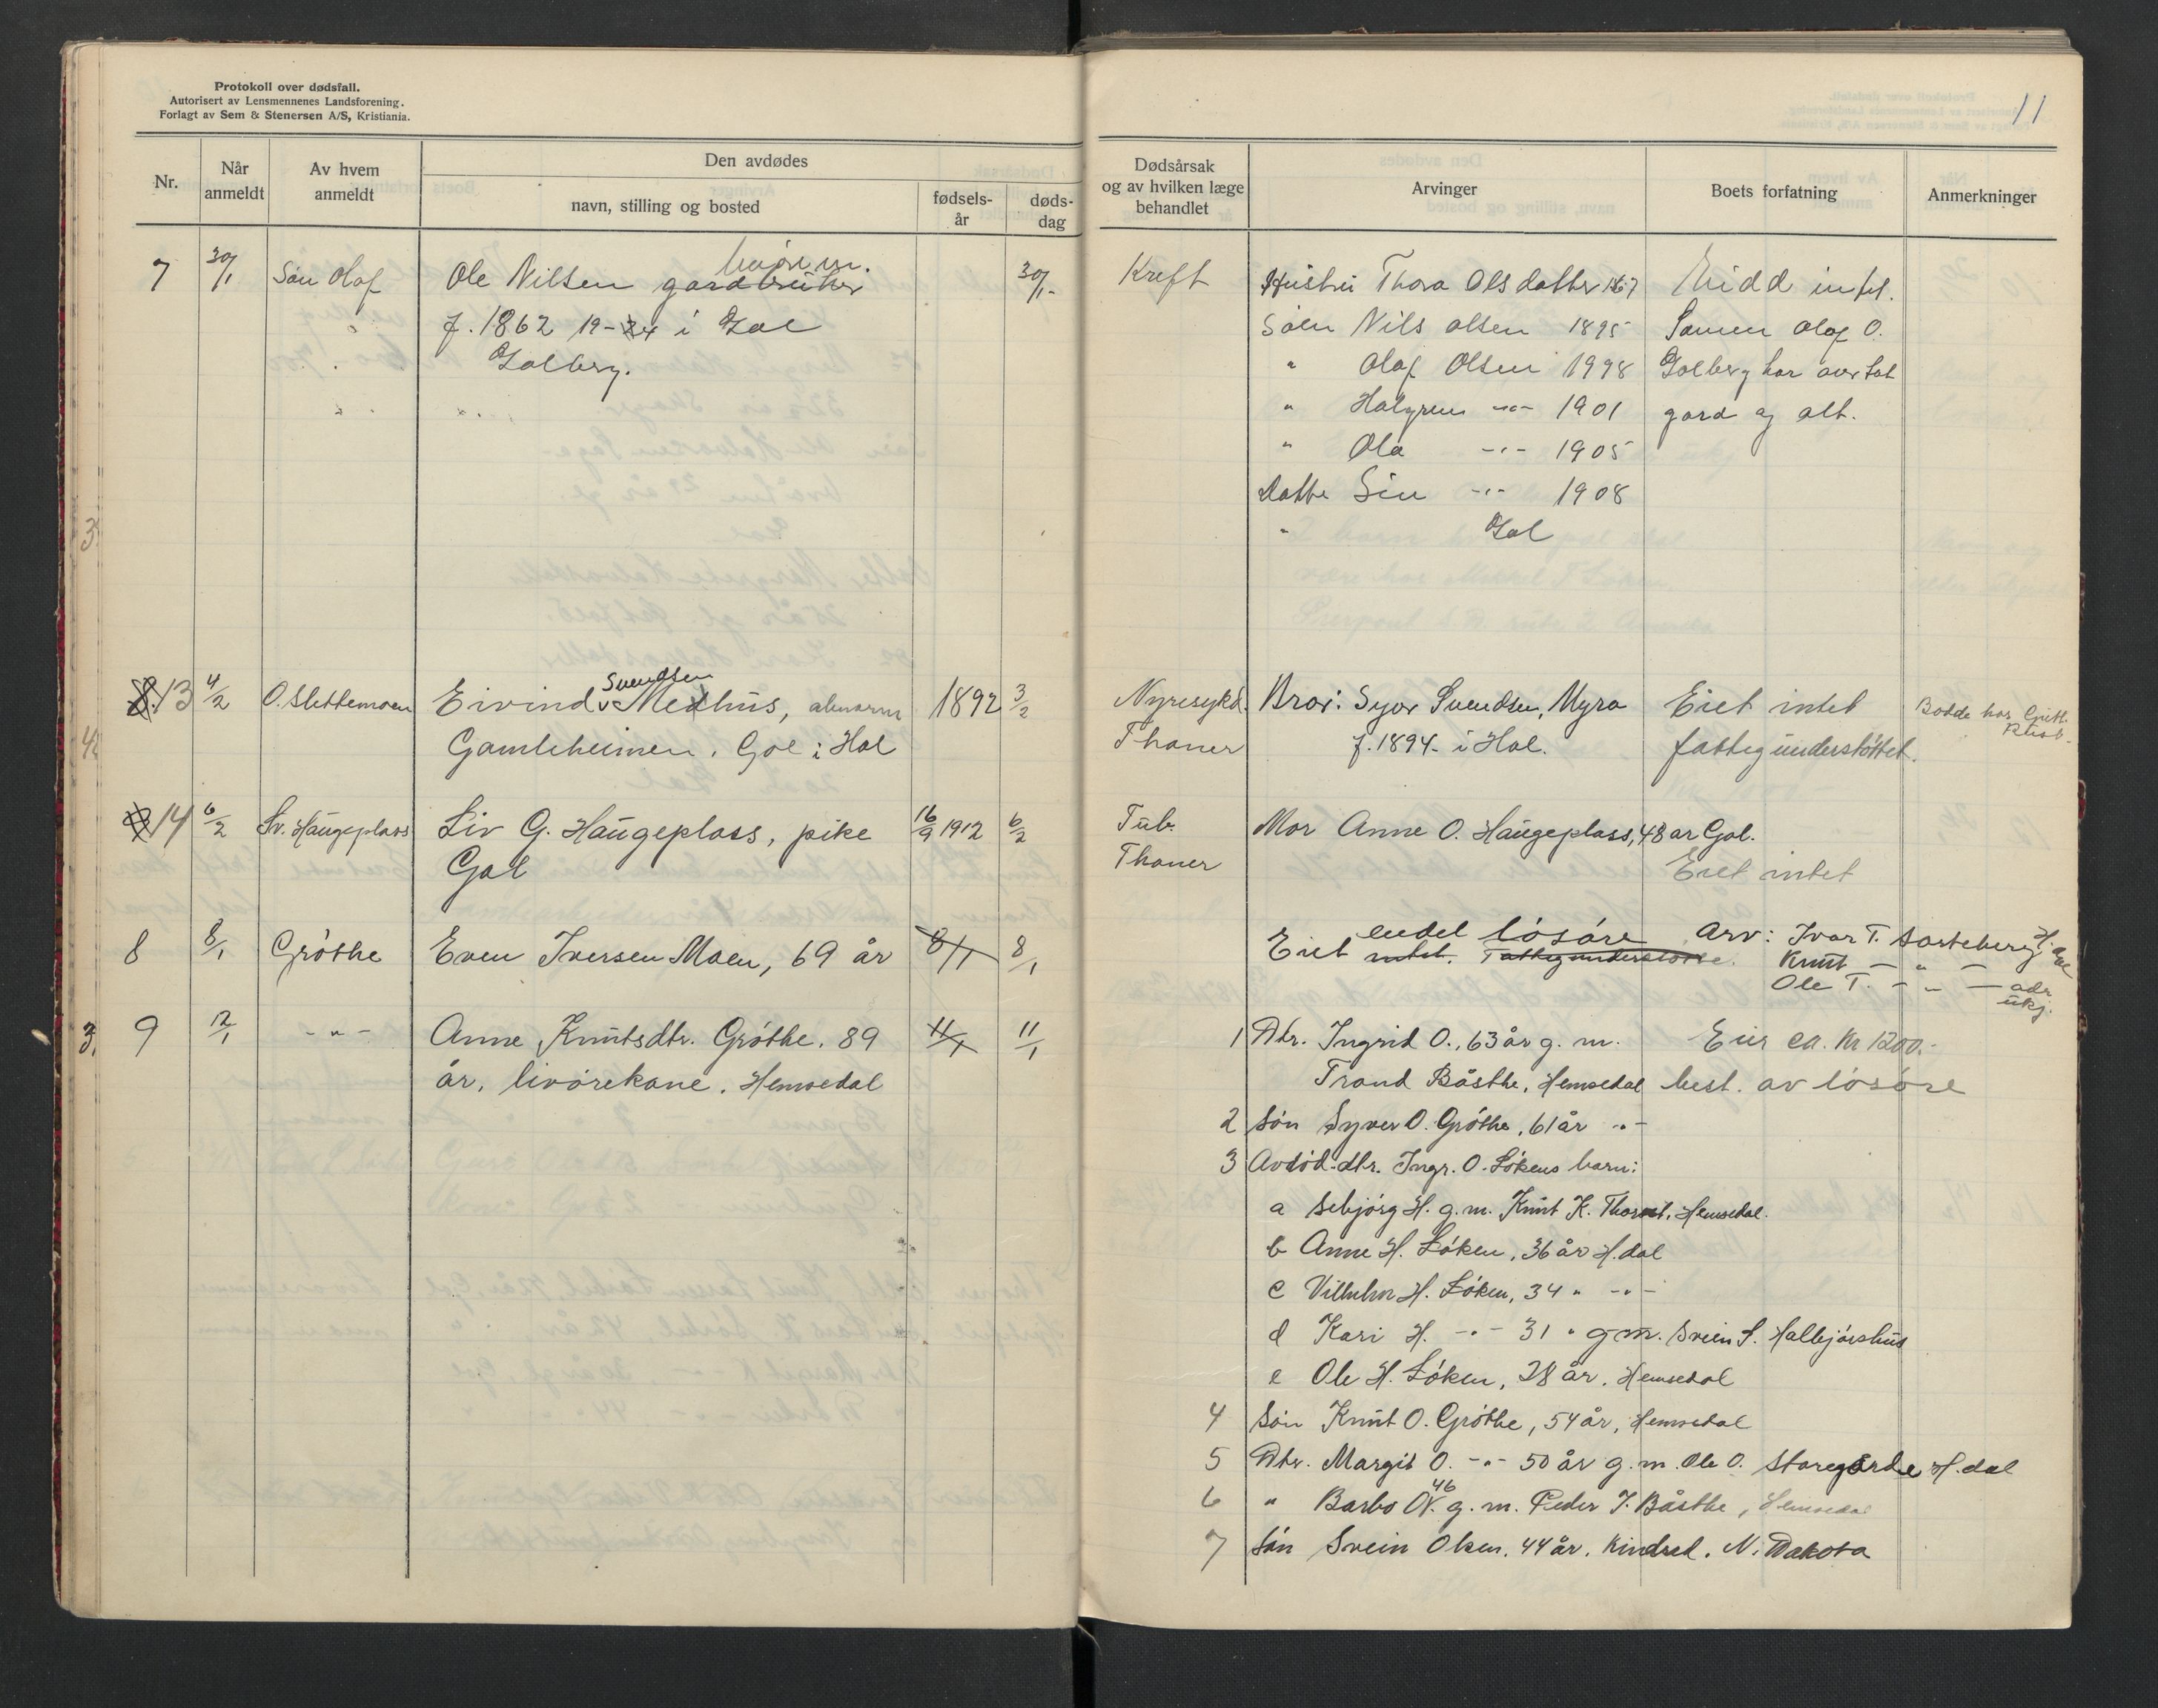 Protokoll over dødsfall.
Autorisert av Lensmennenes Landsforening.
Forlagt av Sem & Stenersen A/S, Kristiania.
11
Nr.
Når anmeldt
Av hvem anmeldt
Den avdødes
navn, stilling og bosted
fødsels-år
døds-dag
Dødsårsak og av hvilken læge behandlet
Arvinger
Boets forfatning
Anmerkninger
7 30/1 Søn Olaf Ole Nilsen gardbruker 30/1- Kreft Hustru Thora Olsdatter 1867 intet.
f. 1862 19-24 i Gol Søn Nils Olsen 1895 Sønnen Olaf O.
Golberg. " Olaf Olsen 1998 Golberg har overtat
" Halgrim -"- 1901 gard og alt.
" Ola -"- 1905
Datte Siu -"- 1908
" Gol
8. 13 4/2 O. Slettemoen Eivind Svendsen Medhus, 1892 3/2 Nyresykd. Bror: Syver Svendsen, Myro Eiet intet Bodde hos
Gamleheimen. Gol i Hol Thaner f. 1894- i Hol. fattigunderstøttet.
14 6/2 Sv. Haugeplass Liv G. Haugeplass, pike 16/9 1912 6/2 Tub. Mor Anne O. Haugeplass, 48 ar Gol.
Gol Thaner Eiet intet
8 8/1 Grøthe Even Iversen Moen, 69 år 8/1 8/1 Eiet intet. Fattigunderstøtte. endel løsøre Arv: Ivar T. Sorteberg H.dal
Knut — " —
Ole T. — " — adr. ukj.
3. 9 12/1 -"- Anne Knutsdtr. Grøthe. 89 11/1 11/1 1 Dtr. Ingrid O., 63 år g. m. Eier ca. kr 1200.-
år, livørekone. Hemsedal Trond Båsthe, Hemsedal best. av løsøre
2 Søn Syver O. Grøthe, 61 år -"-
3 Avdød dtr. Ingr. O. Løkens barn:
a Sebjørg H. g.m. Knut K. Hemsedal.
b Anne H. Løken, 36 år H.dal
c Vilhelm H. Løken, 34 " -"-
d Kari H. -"- 31 " g m. Svein S. Halbjørshus
e Ole H. Løken, 28 år. Hemsedal
4 Søn Knut O. Grøthe, 54 år, Hemsedal
5 Dtr. Margit O. -"- 50 år g.m. Ole O. Storegarde H.dal
6 " Barbo O. 46 g.m. Peder T. Båsthe, Hemsedal
7 Søn Svein Olsen. 44 år. Kindred. N. Dakota